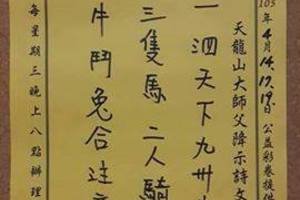 105年4月14.17.19日公益彩卷提供
天龍山大師父降示詩文
一泗天下九卅
三隻馬二人騎
牛鬥兔合注意
每星期三晚上八點辦理